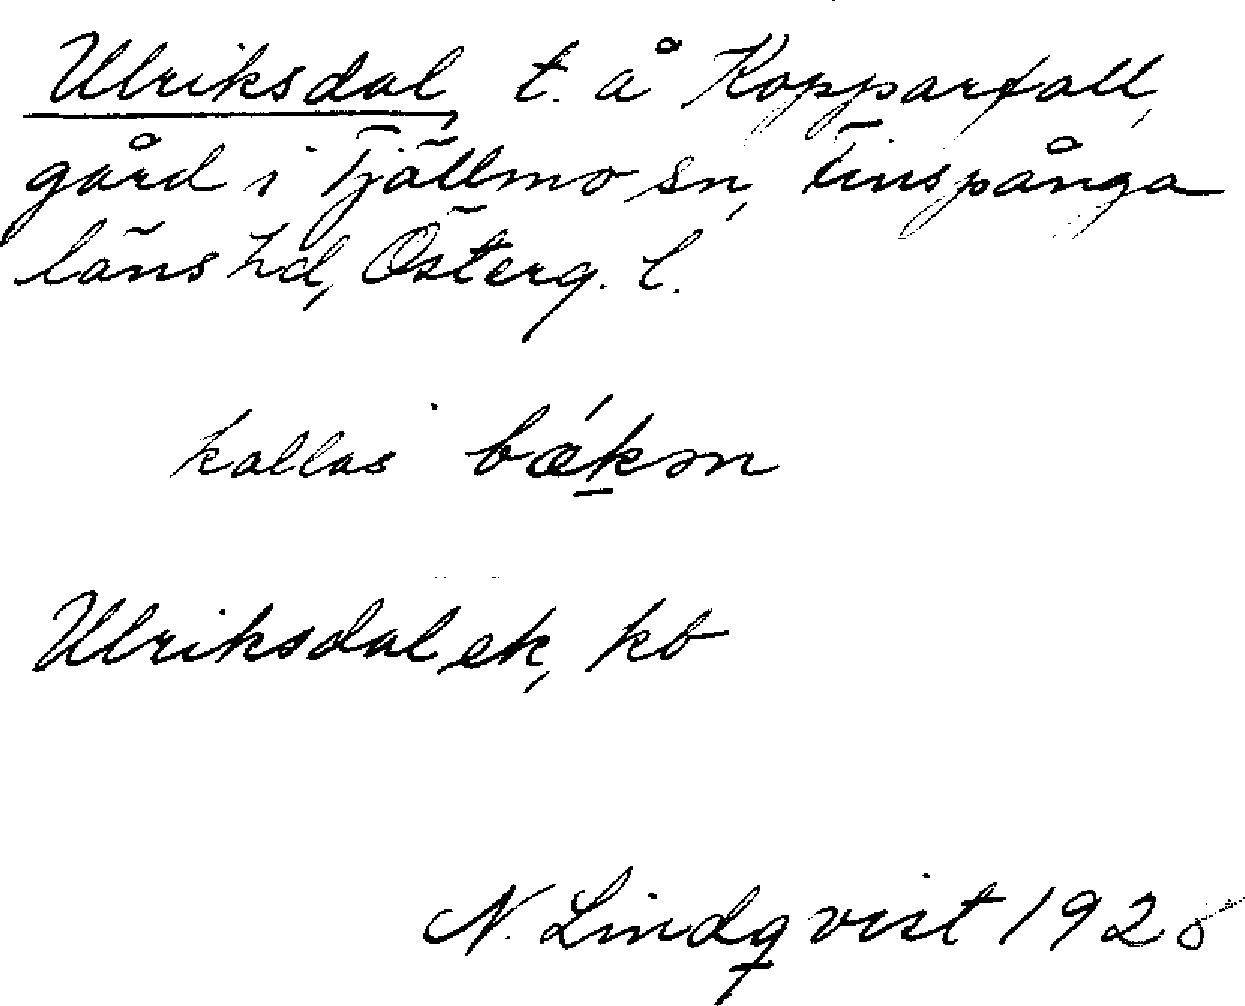 Ulriksdal, t. å Kopparfall,
gård i Tjällmo sn, Finspånga
läns hd, Österg. l.
kallas
Ulriksdal ek, kb
N. Lindqvist 1928